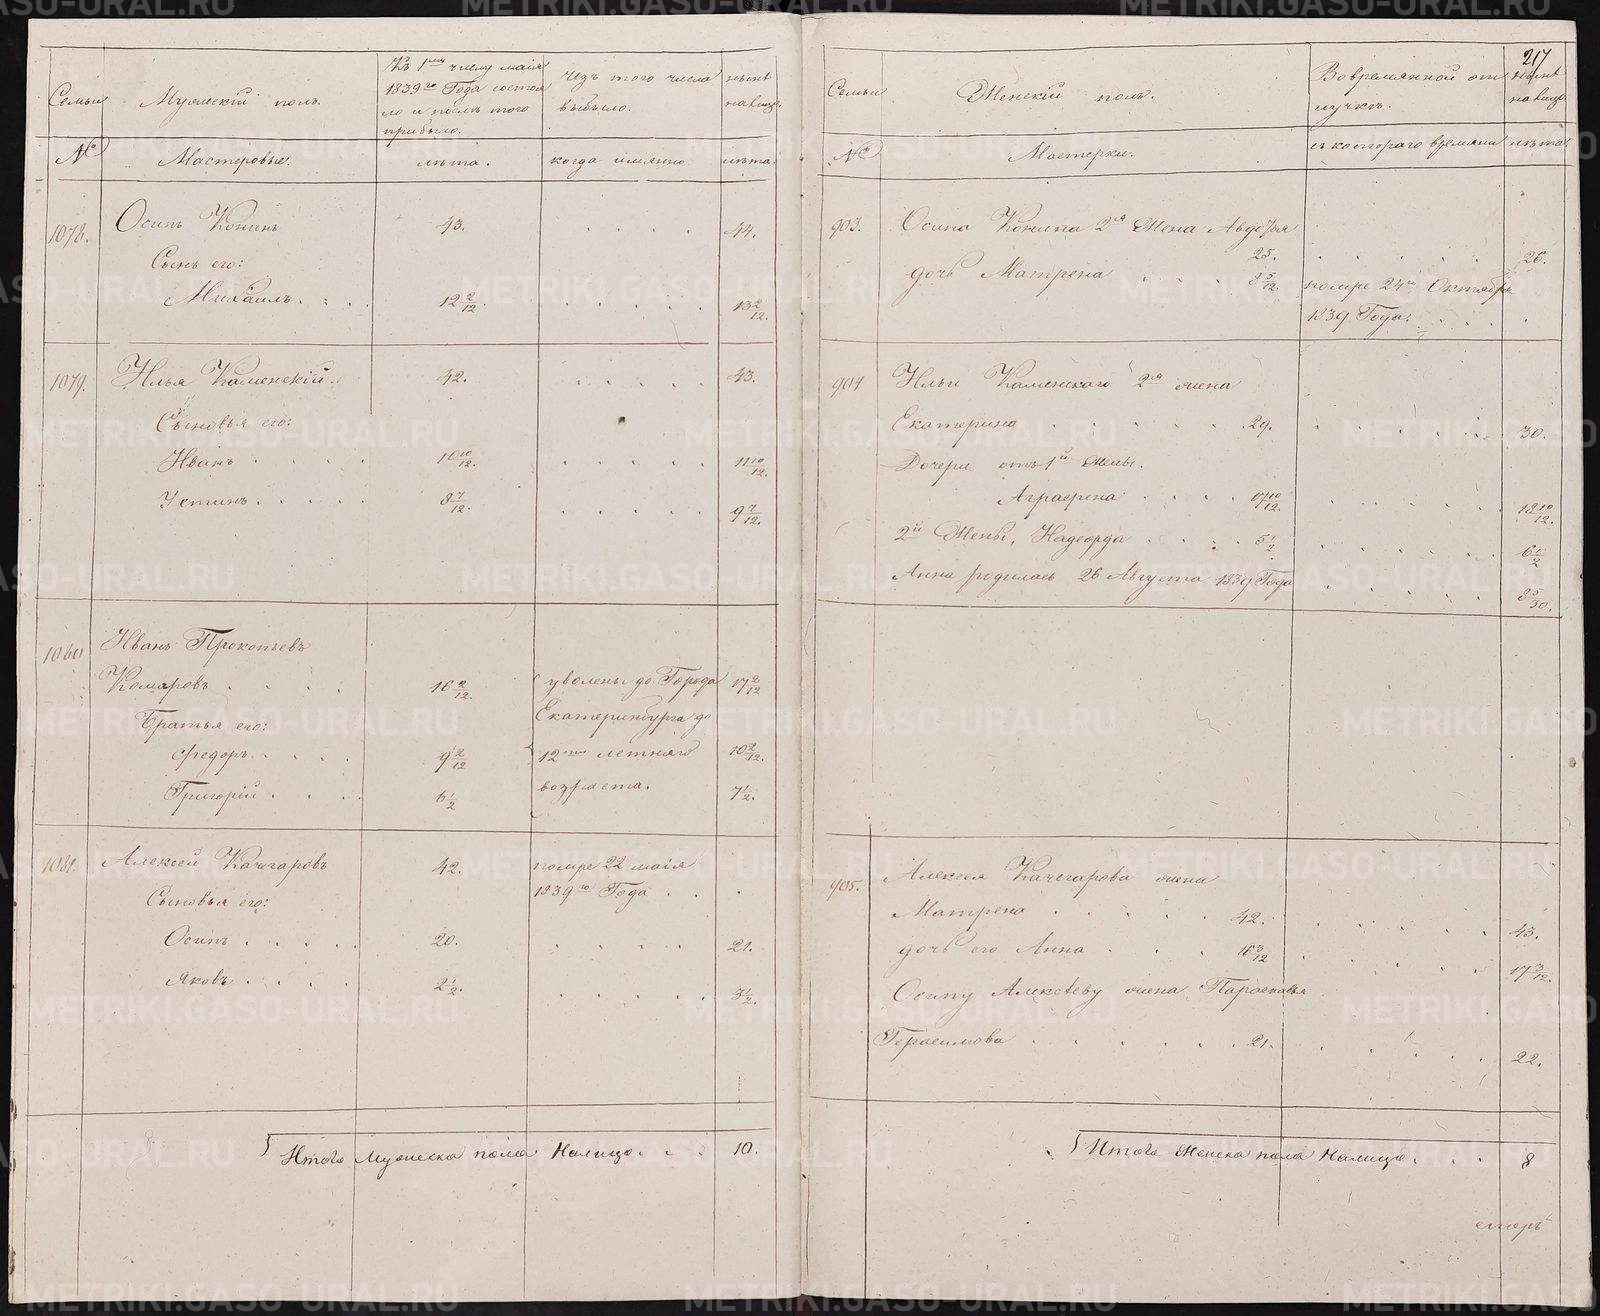 Семьи
Мужескій полъ.
Къ 1му числу маія
1839го Года состоя
ло и послѣ того
прибыло.
Изъ того числа
выбыло.
нынѣ
налицо.
№
Мастеровые.
лѣта.
когда имянно
лѣта.
1078.
Осипъ Конинъ
43.
44.
Сынъ его:
Михаилъ
12 2/12.
13 2/12.
1079.
Илья Каменскій.
42.
43.
Сыновья его:
Иванъ
10 10/12.
11 10/12.
Устинъ
8 7/12.
9 7/12.
1080
Иванъ Прокопьевъ
Комаровъ
16 2/12.
уволены до Города
17 2/12
Братья его:
Екатеринбурга до
Федоръ
9 2/12
12ти летняго
10 2/12.
Григорій
6 1/2
возраста.
7 1/2.
1081.
Алексей Качгаровъ
42.
помре 22 маія
1839го Года
Сыновья его:
Осипъ
20.
21.
Яковъ
2 1/2.
3 1/2.
Итого Мужеска пола Налицо
10.
217
Семьи
Женскій полъ.
Вовремянной от
лучкѣ.
нынѣ
налицо.
№
Мастерки.
съ котораго времяни
лѣта
903.
Осипа Конина 2я Жена Авдотья
25.
26.
дочь Матрена
8 5/12.
помре 24го Октября
1839 Года.
904
Ильи Каменскаго 2я жена
Екатерина
29.
30.
Дочери отъ 1й Жены.
Аграфена
17 10/12.
18 10/12.
2й Жены, Надежда
5 1/2
6 1/2
Анна родилась 26 Августа 1839 Года
8 5/30.
905.
Алексея Качгарова жена
Матрена
42.
43.
дочь его Анна
16 3/12
17 3/12.
Осипу Алексѣеву жена Парасковья
Герасимова
21.
22.
Итого Женска пола Налицо
8
METRIKI.GASO-URAL.RU